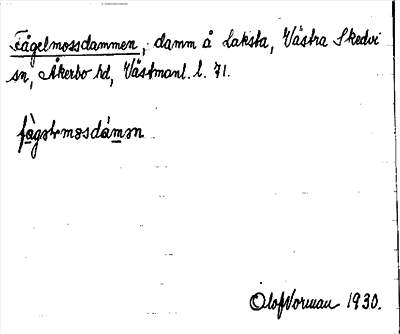 Fågelmossdammen, damm å Laksta, Västra Skedvi
sn, Åkerbo hd, Västmanl. l. 71.
Olof Vorman 1930.